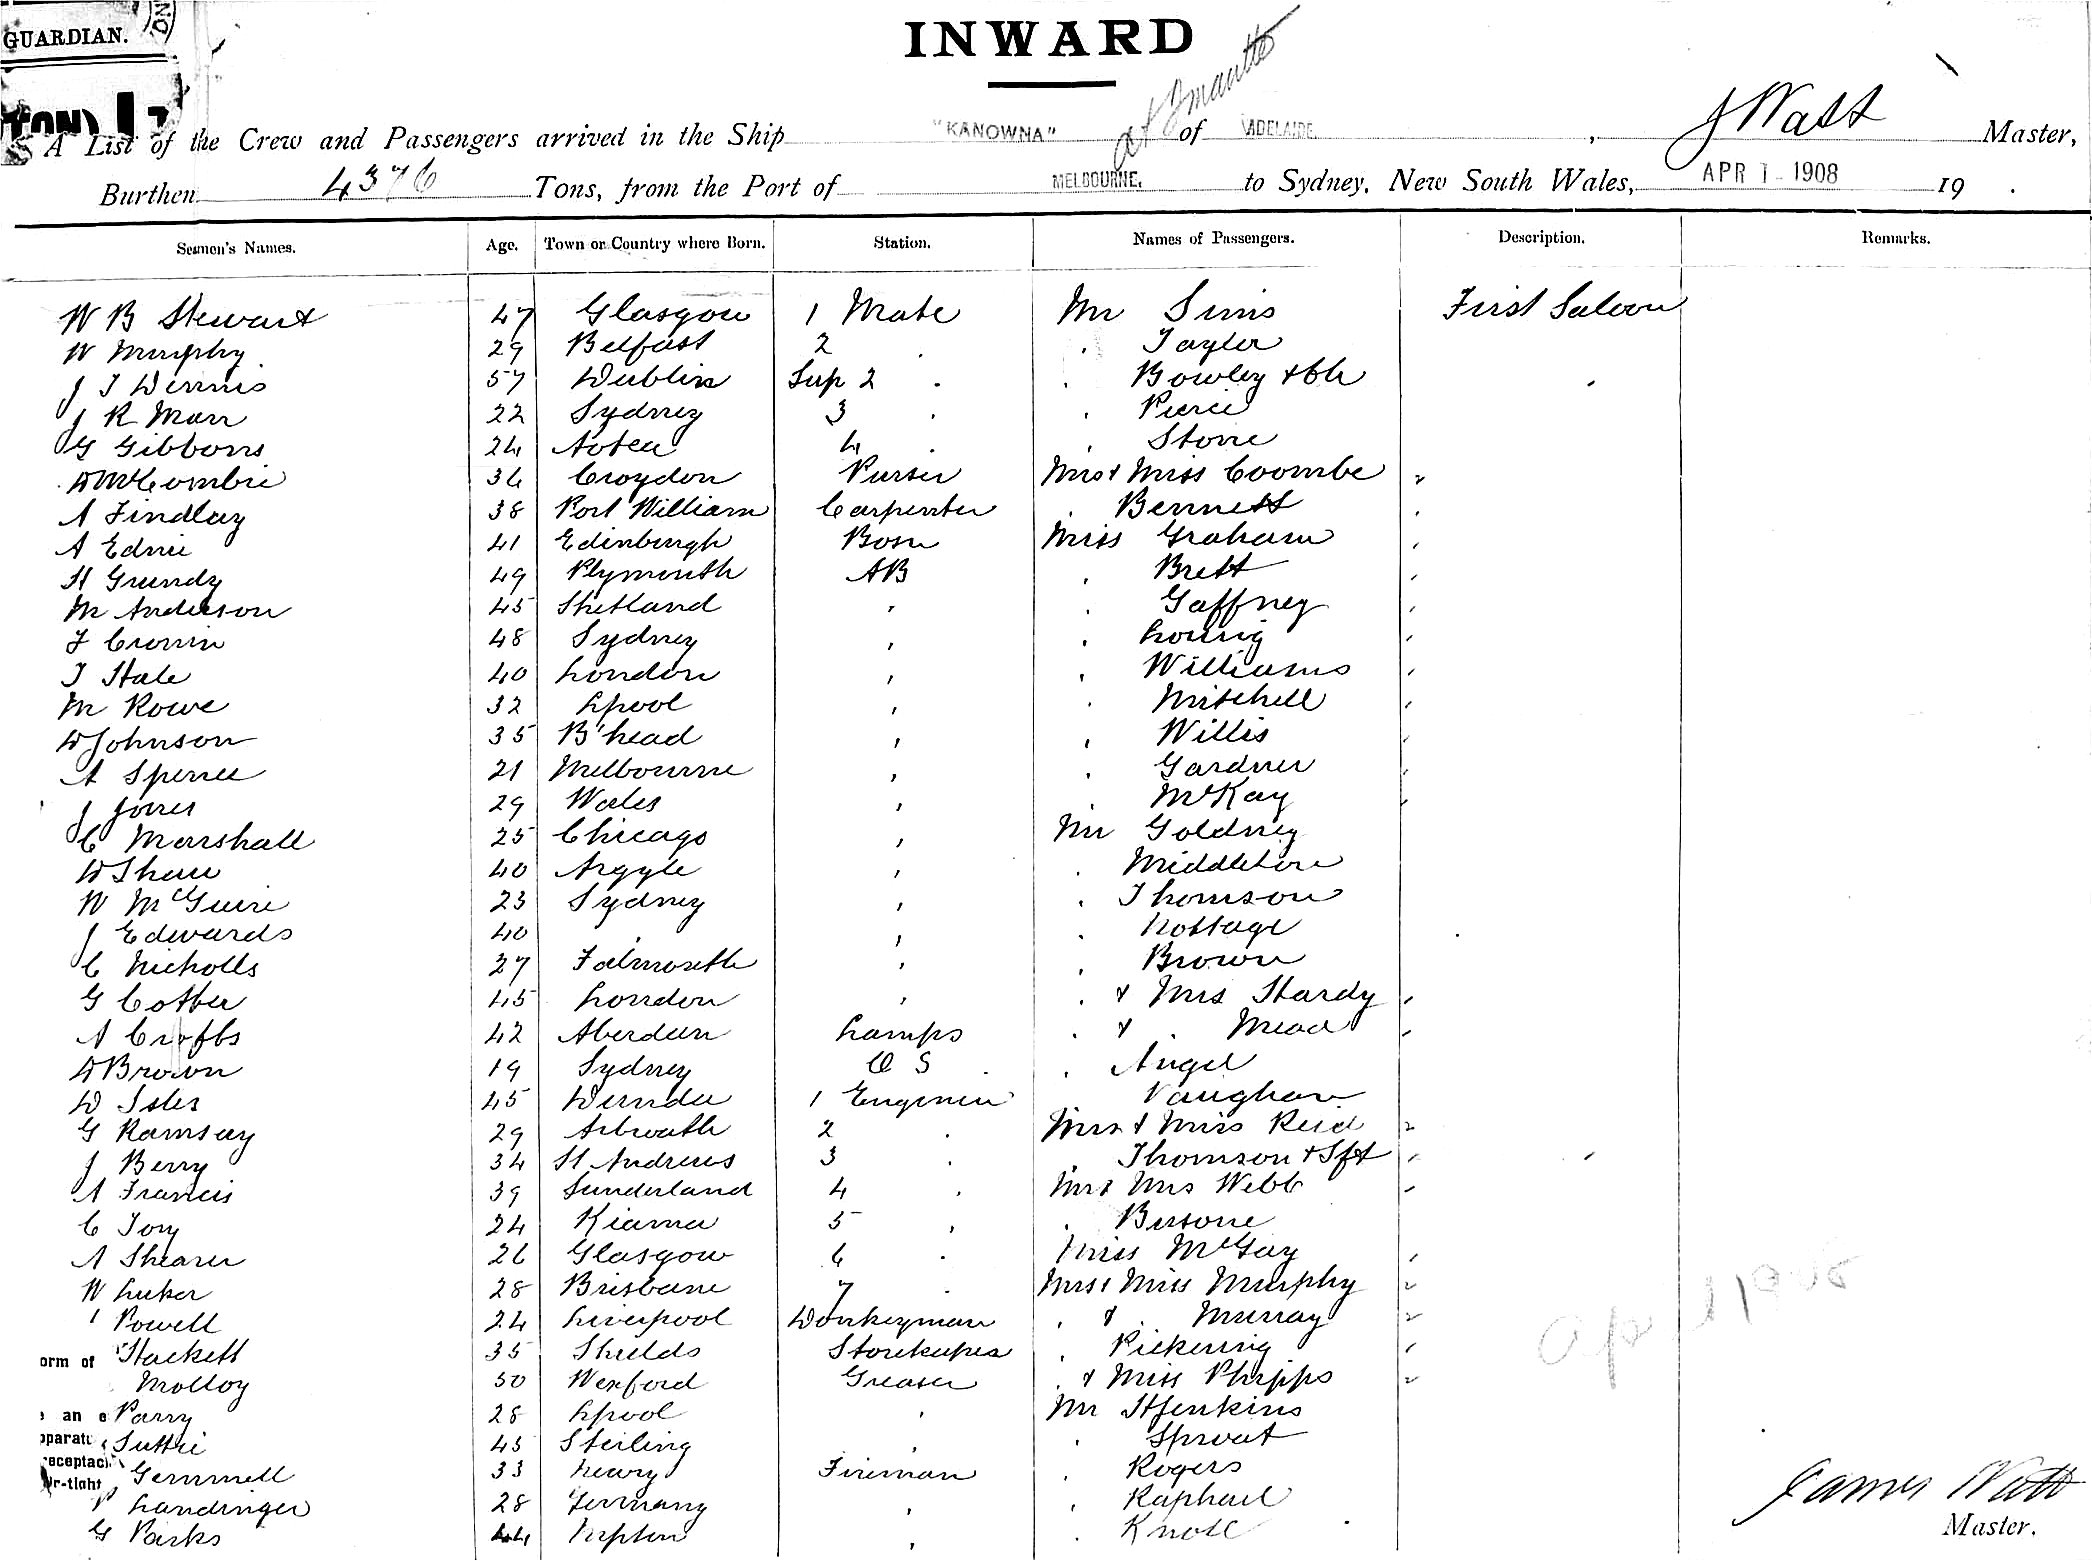 GUARDIAN.
INWARD
A List of the Crew and Passengers arrived in the Ship "KANOWNA" of ADELAIDE, J Watt Master,
Burthen 4376 Tons, from the Port of MELBOURNE, to Sydney, New South Wales, APR 1 - 1908 19 .
Seamen's Names. Age. Town or Country where Born. Station. Names of Passengers. Description. Remarks.
W B Stewart 47 Glasgow 1 Mate Mr Sims First Saloon
W Murphy 29 Belfast 2 . . Tayler
J T Dennis 57 Dublin Sup 2 . . Bowley + Ch
J R Marr 22 Sydney 3 . . Pierce
G Gibbons 24 Aotea 4 . . Stone
D McCombie 36 Croydon Purser Mrs + Miss Coombe "
A Findlay 38 Port William Carpenter . Bennett
A Ednie 41 Edinburgh Bosn Miss Graham
H Grundy 49 Plymouth AB . Brett
M Anderson 45 Shetland , . Gaffney
F Cronin 48 Sydney , .
T Hale 40 London , . Williams
M Rowe 32 Lpool , . Mitchell
D Johnson 35 B'head , . Willis
A Spence 21 Melbourne , . Gardner
J Jones 29 Wales , . McKay
C Marshall 25 Chicago , Mr Goldney
D Shaw 40 Argyle , . Middleton
W McGuire 23 Sydney , . Thomson
J Edwards 40 . , . Nottage
C Nicholls 27 Falmouth , . Brown
G Cotter 45 London , . + Mrs Hardy
A Crabbs 42 Aberdeen Lamps . + . Mead
D Brown 19 Sydney O S . . Angel
D Isles 45 Dundee 1 Engineer Vaughan
G Ramsay 29 Arbroath 2 . Mrs + Miss Reid "
J Berry 34 St Andrews 3 . . Thomson + Sft
A Francis 39 Sunderland 4 . Mr + Mrs Webb
C Toy 24 Kiama 5 , .
A Shearer 26 Glasgow 6 . Miss McGay
W Luker 28 Brisbane 7 . Mrs + Miss Murphy "
Powell 24 Liverpool Donkeyman . + . Murray "
orm of Hackett 35 Shields Storekeeper . Pickering
Molloy 50 Wexford Greaser . + Miss Phipps "
an e Parry 28 Lpool , Mr H Jenkins
parat Suttie 45 Stirling , . Sprout
receptacl Gemmell 33 Newry Fireman . Rogers
ir-tight
P Landinger 28 Germany , . Raphael
G Parks 44 , . Knoll
James Watt
Master.